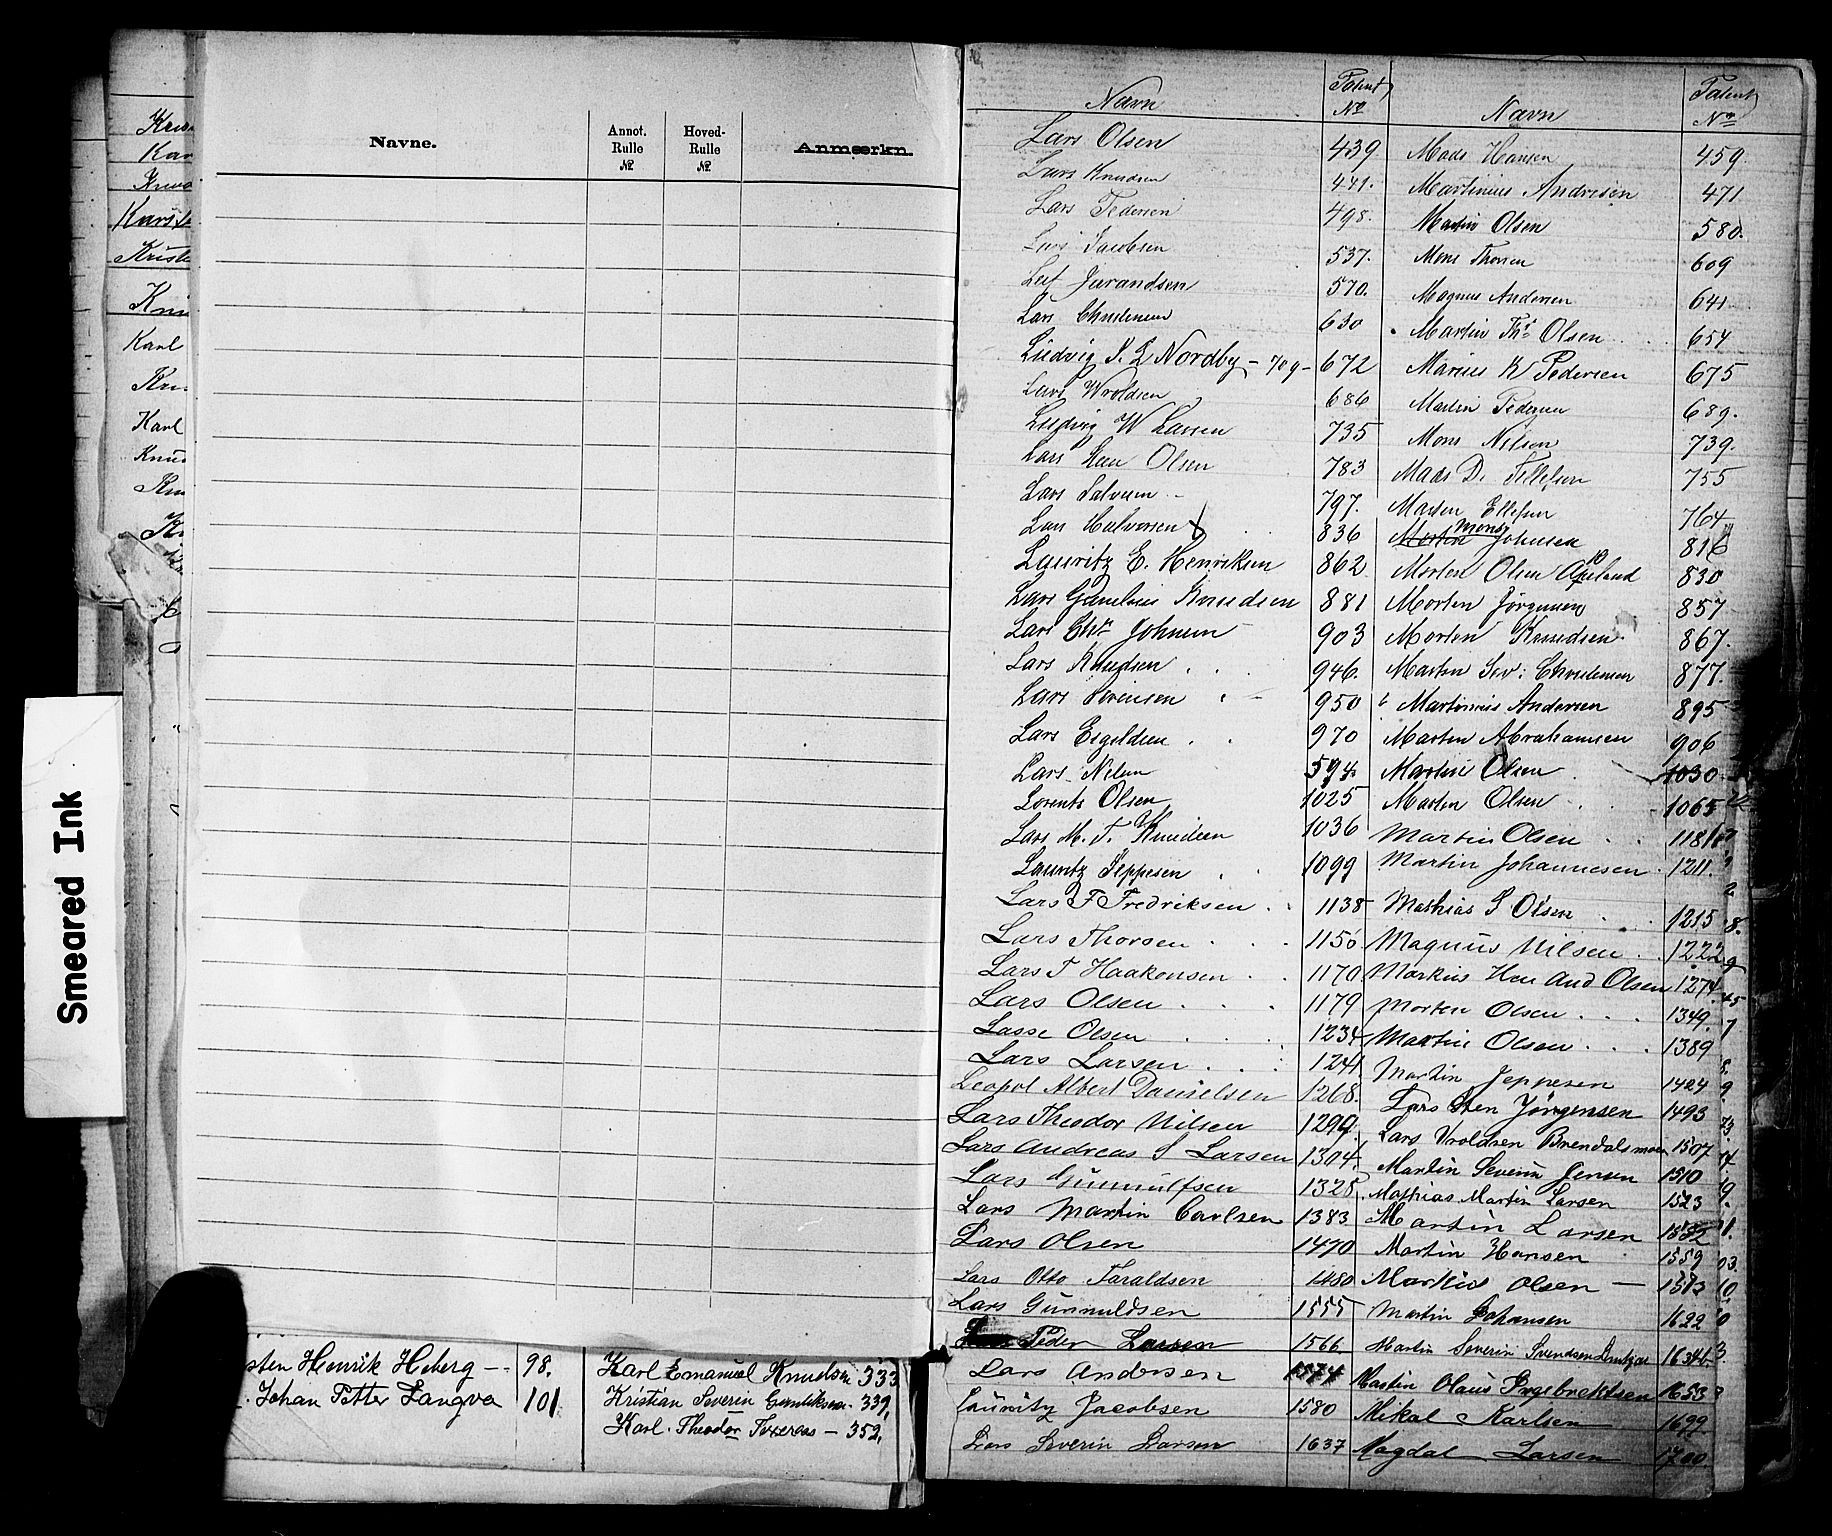 Navne.
Annot. Rulle №
Hoved-Rulle №
Anmærkn.
Karl
Karl
Smeared Ink
Henrik Hoberg -- 98.
Johan Petter Langva 101
Karl Emanuel Knudsen 333
Kristian Severin Gundiksen. 339,
Karl. Theodor Toreraas - 352,
Navn Patent No
Lars Olsen 439.
Lars Knudsen 441.
Lars Pedersen 498.
Lars Jacobsen 537.
Leif Jurandsen 570.
Lars Christensen 630
Ludvig P. L Nordby - 709 - 672
Lars Wroldsen 686
Ludvig W Larsen 735
Lars Hen Olsen 783
Lars Salvesen 797.
Lars Halvorsen 836
Lauritz E. Henriksen 862
Lars Gamelius Knudsen 881
Lars Chr Johnsen 903
Lars Knudsen 946.
Lars Sörensen 950
Lars Eigeldsen 970
Lars Nilsen 594.
Lorents Olsen 1025
Lars M. T. Knudsen 1036
Lauritz Jeppesen 1099
Lars F Fredriksen 1138
Lars Thorsen 1150
Lars T Haakonsen 1170
Lars Olsen 1179
Lasse Olsen 1234
Lars Larsen 1241
Leopol Albert Danielsen 1268.
Lars Theodor Nilsen 1299.
Lars Andreas S Larsen 1304.
Lars Gunnulfsen 1328
Lars Martin Carlsen 1383
Lars Olsen 1470
Lars Otto Taraldsen 1480
Lars Gunnuldsen 1555
Peder Larsen 1566
Lars Andersen 1574
Lauritz Jacobsen 1580
Lars Severin Larsen 1637
Navn Patent No
Mads Hansen 459.
Martinius Andresen 471
Martin Olsen 580.
Mons Thorsen 609
Magnus Andersen 641.
Martin Ths Olsen 654
Marius K Pedersen 675
Martin Pedersen 689.
Mons Nilsen 739.
Mads D. Tellefsen 755
Morten Ellefsen 764
Morten Mons Johnsen 816
Morten Olsen Apeland 830
Morten Jörgensen 857
Morten Knudsen 867.
Morten Sev: Christensen 877.
Martinius Andersen 895
Morten Abrahamsen 906
Martin Olsen 1030
Morten Olsen 1065
Martin Olsen 1181
Martin Johannesen 1211.
Mathias S Olsen 1215
Magnus Nilsen 1222
Markus Hen And Olsen 1274.
Morten Olsen 1349.
Martin Olsen 1389
Martin Jeppesen 1424
Lars Sten Jörgensen 1493
Lars Vroldsen Brendalsmoen 1507
Martin Severin Jensen 1510
Mathias Martin Larsen 1523
Martin Larsen 1532
Martin Hansen 1559
Markus Olsen 1573
Martin Johansen 1622
Martin Severin Svendsen 1634
Martin Olaus Ingebrektsen 1653
Mikal Karlsen 1699
Magdal Larsen 1700.